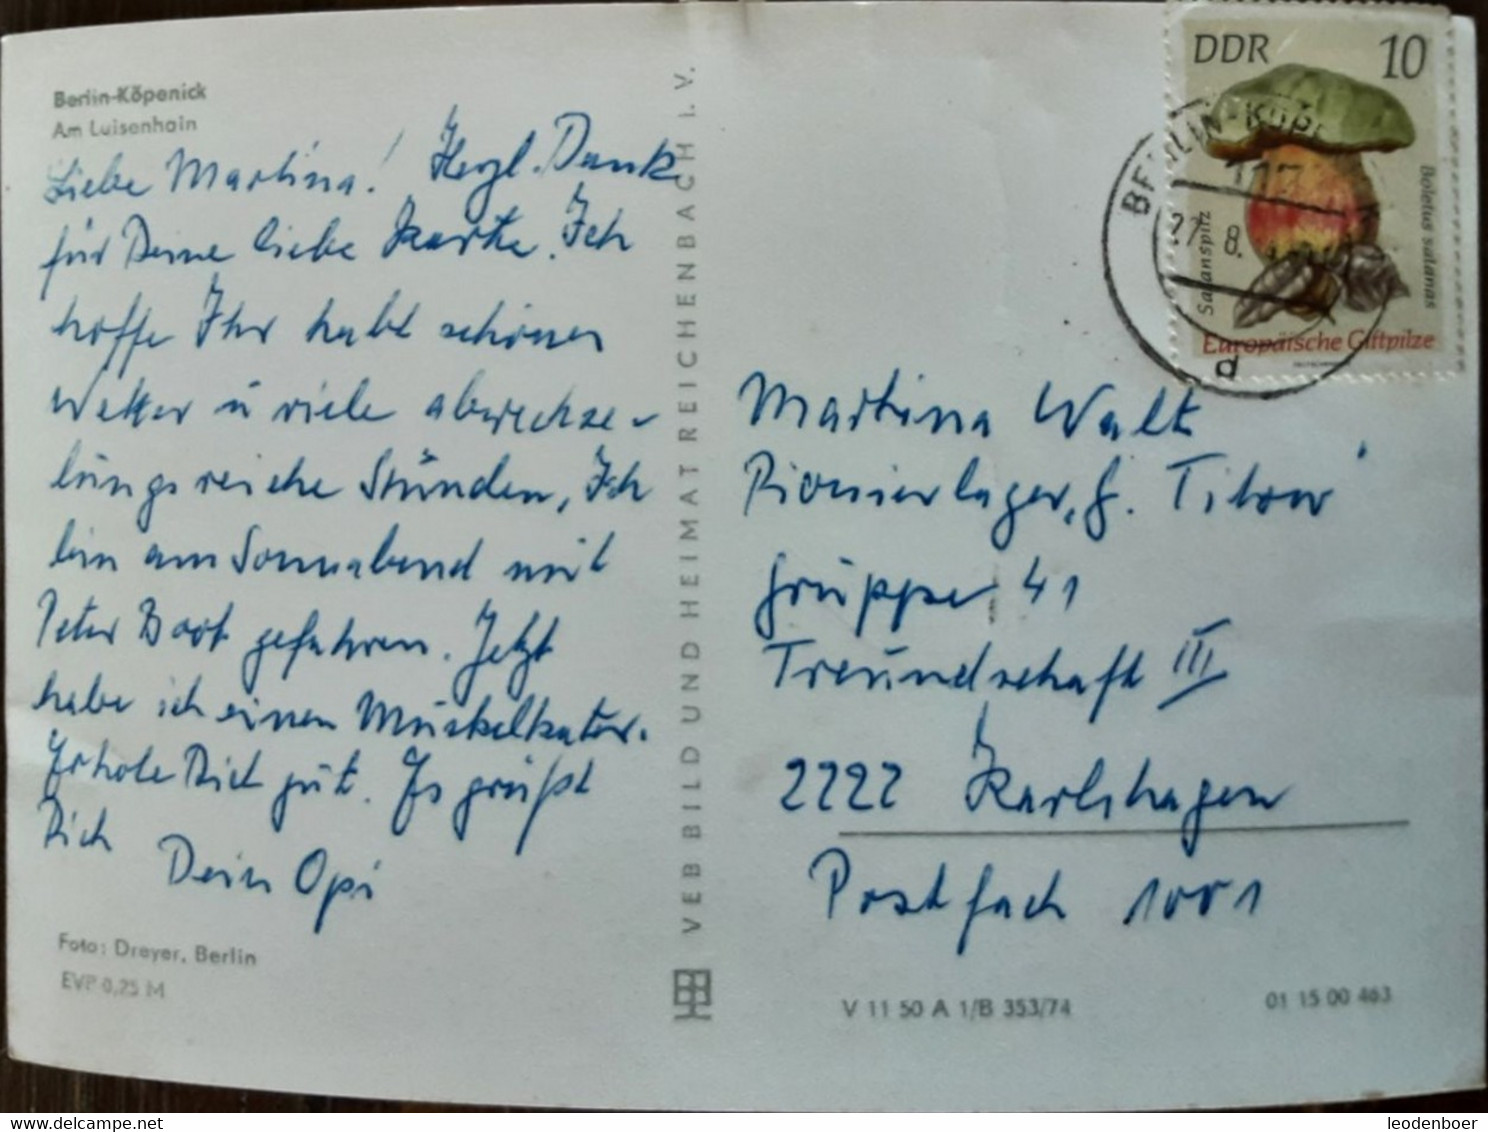 Berlin-Köpenick
Am Luisenhain
Liebe Martina! Herzl. Dank
für Deine liebe Karte. Ich
hoffe Ihr habt schönes
Wetter u viele abwechse-
lungsreiche Stunden, Ich
bin am Sonnabend mit
Peter Boot gefahren. Jetzt
habe ich einen Muskelkater.
Erhole Dich gut. Es grüßt
Dich
Dein Opi
Foto: Dreyer, Berlin
EVP 0,25 M
VEB BILD UND HEIMAT REICHENBACH I. V.
DDR 10
Satanspilz
Boletus satanas
Europäische Giftpilze
BERLIN-KÖP
117
27. 8.
d
Martina Walt
Pionierlager, G. Titow
Gruppe 41
Freundschaft III
2222 Karlshagen
Postfach 1001
V 11 50 A 1/B 353/74
01 15 00 463
leodenboer